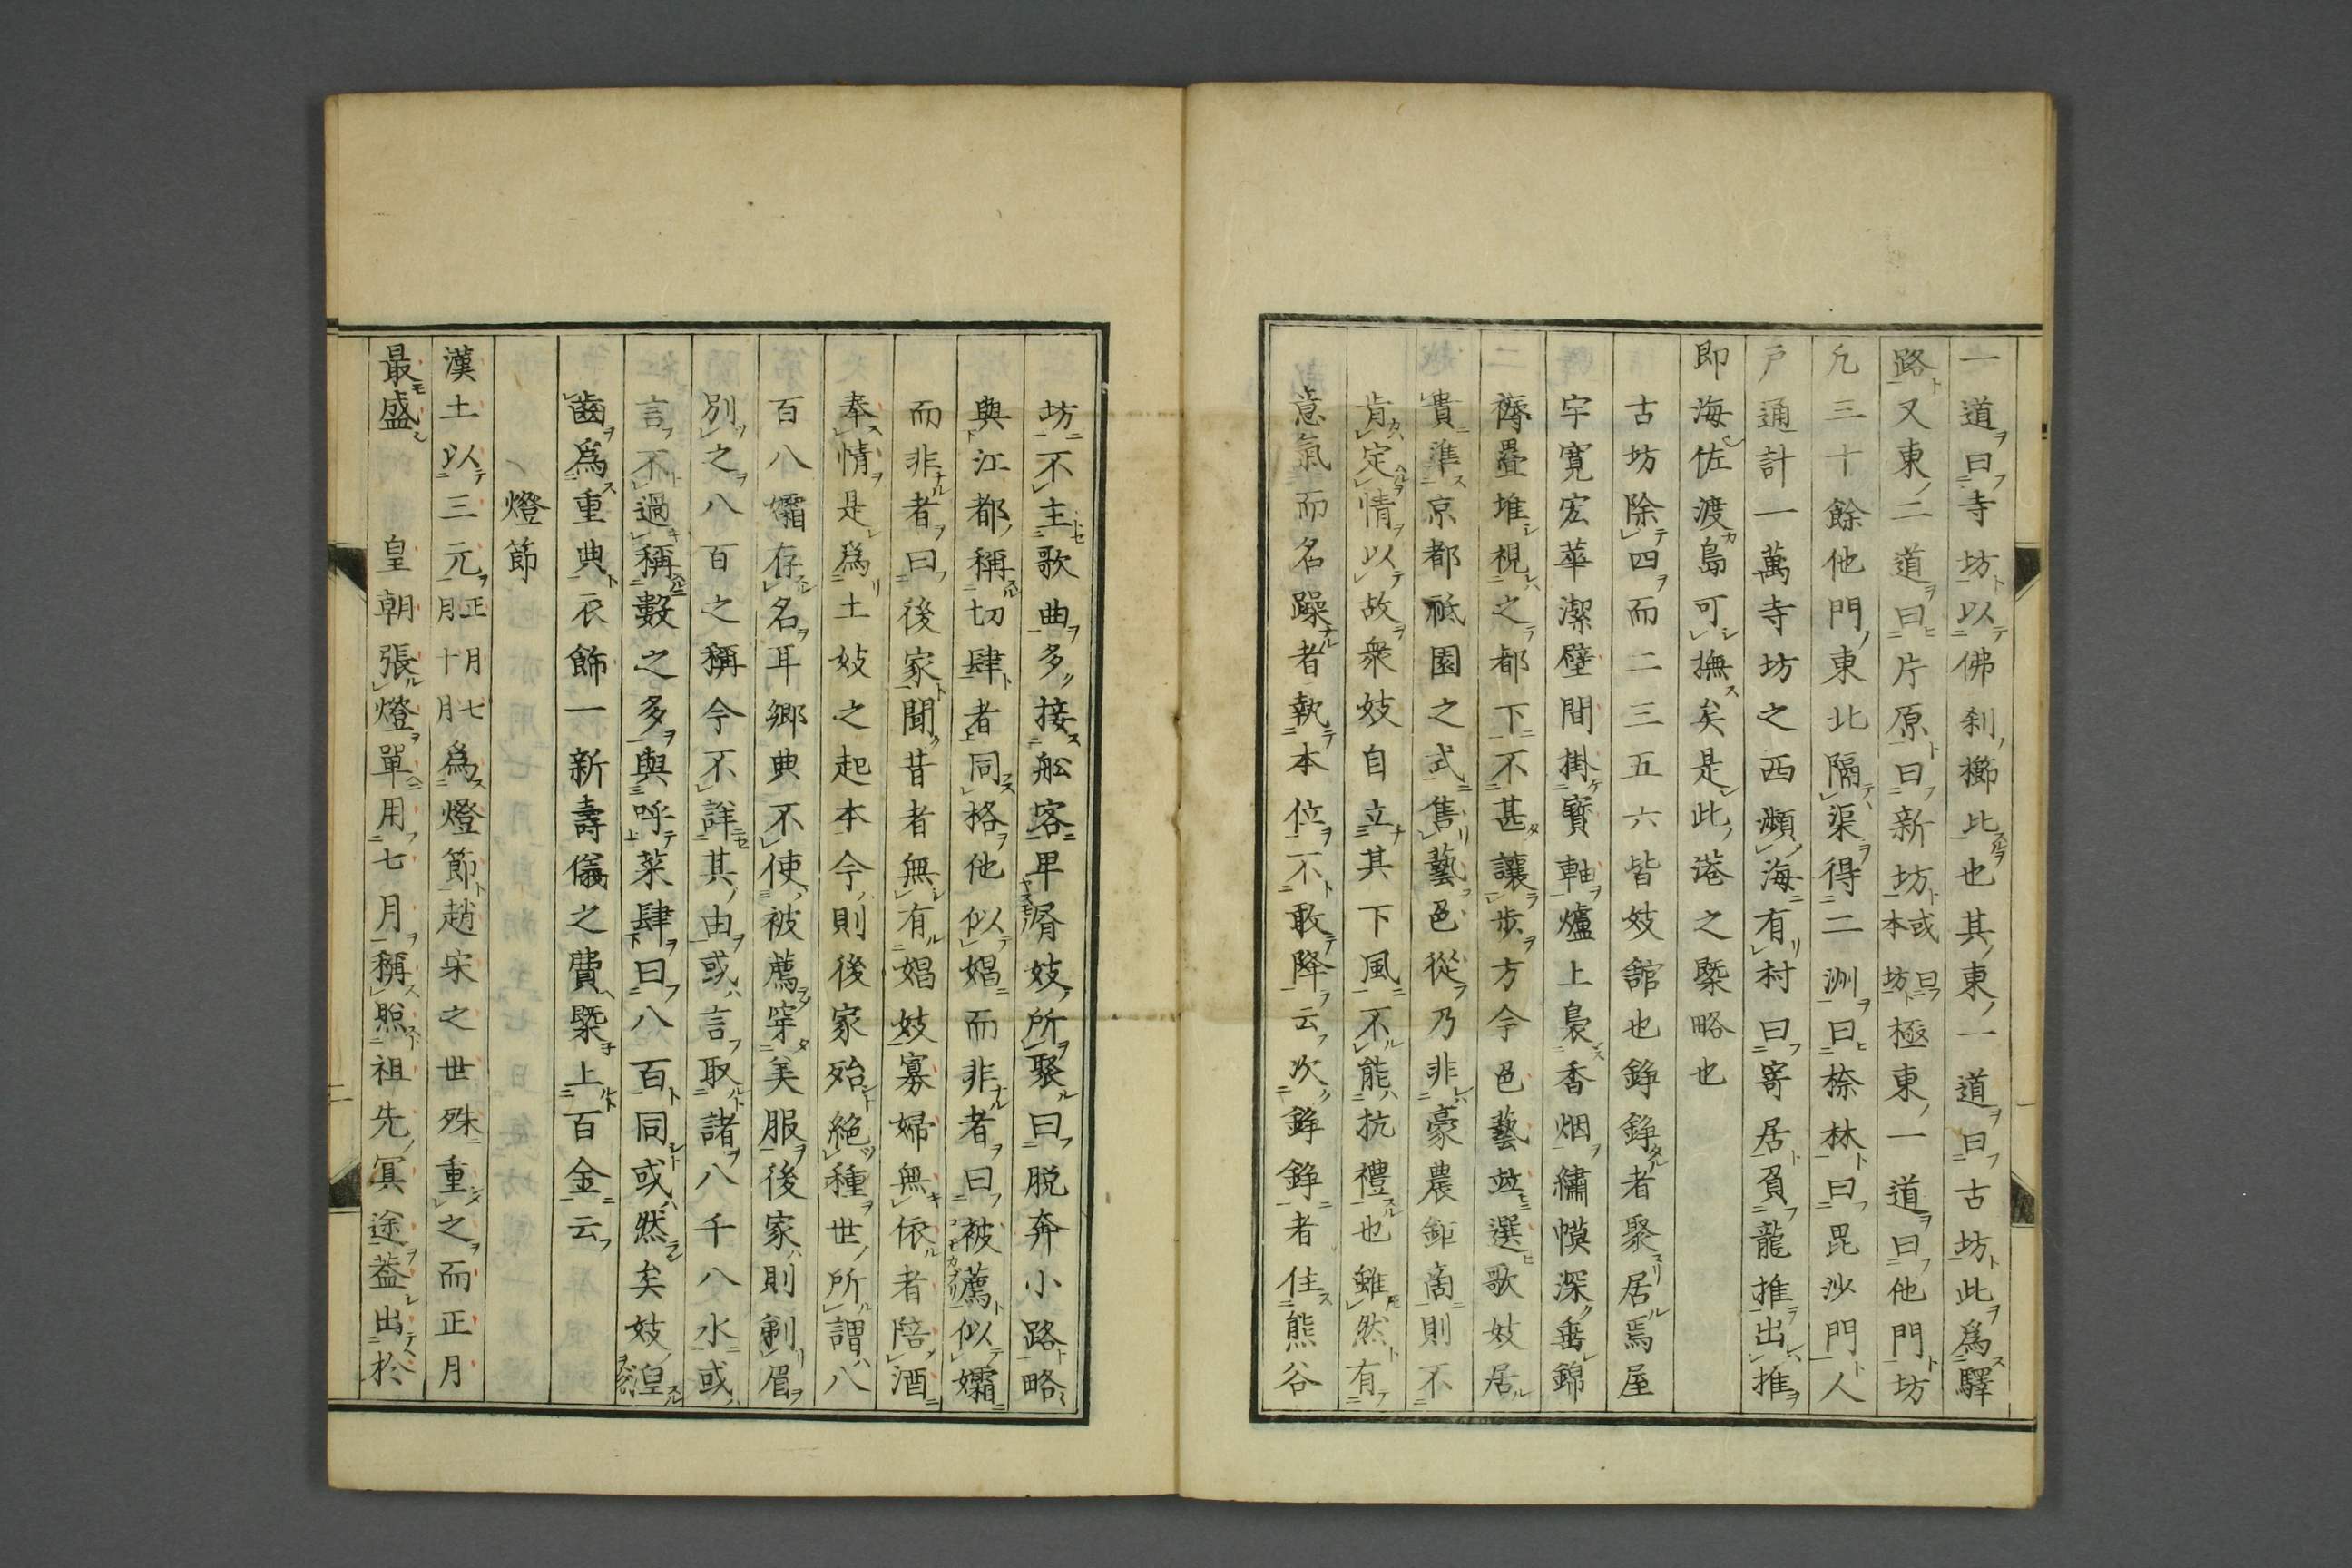 一道曰寺坊以佛刹櫛比也其東一道曰古坊此爲驛
路又東二道曰片原曰新坊或曰本坊極東一道曰他門坊
凢三十餘他門東北隔渠得二洲曰榇林曰毘沙門人
戸通計一萬寺坊之西瀕海有村曰寄居負龍推出推
即海佐渡島可撫矣是此港之槩略也
古坊除四而二三五六皆妓舘也錚錚者聚居焉屋
宇寛宏華潔壁間掛寳軸爐上裊香烟繡幙深垂錦
褥疊堆視之都下不甚讓歩方今邑藝並選歌妓居
貴準京都祗園之式售藝邑從乃非豪農鉅啇則不
肯定情以故衆妓自立其下風不能抗禮也雖然有
意氣而名躁者執本位不敢降云次錚錚者住熊谷
坊不主歌曲多接舩客卑屑妓所聚曰脱奔小路略
與江都稱切肆者同格他似娼而非者曰被薦似孀
而非者曰後家聞昔者無有娼妓寡婦無依者陪酒
奉情是爲土妓之起本今則後家殆絶種世所謂八
百八孀存名耳郷典不使被薦穿美服後家則剃眉
別之八百之稱今不詳其由或言取諸八千八水或
言不過稱數之多與呼菜肆曰八百同或然矣妓湟
齒爲重典衣飾一新壽儀之費槩上百金云
燈節
漢土以三元正月十月七月爲燈節趙宋之世殊重之而正月
最盛　皇朝張燈單用七月稱照祖先冥途葢出於